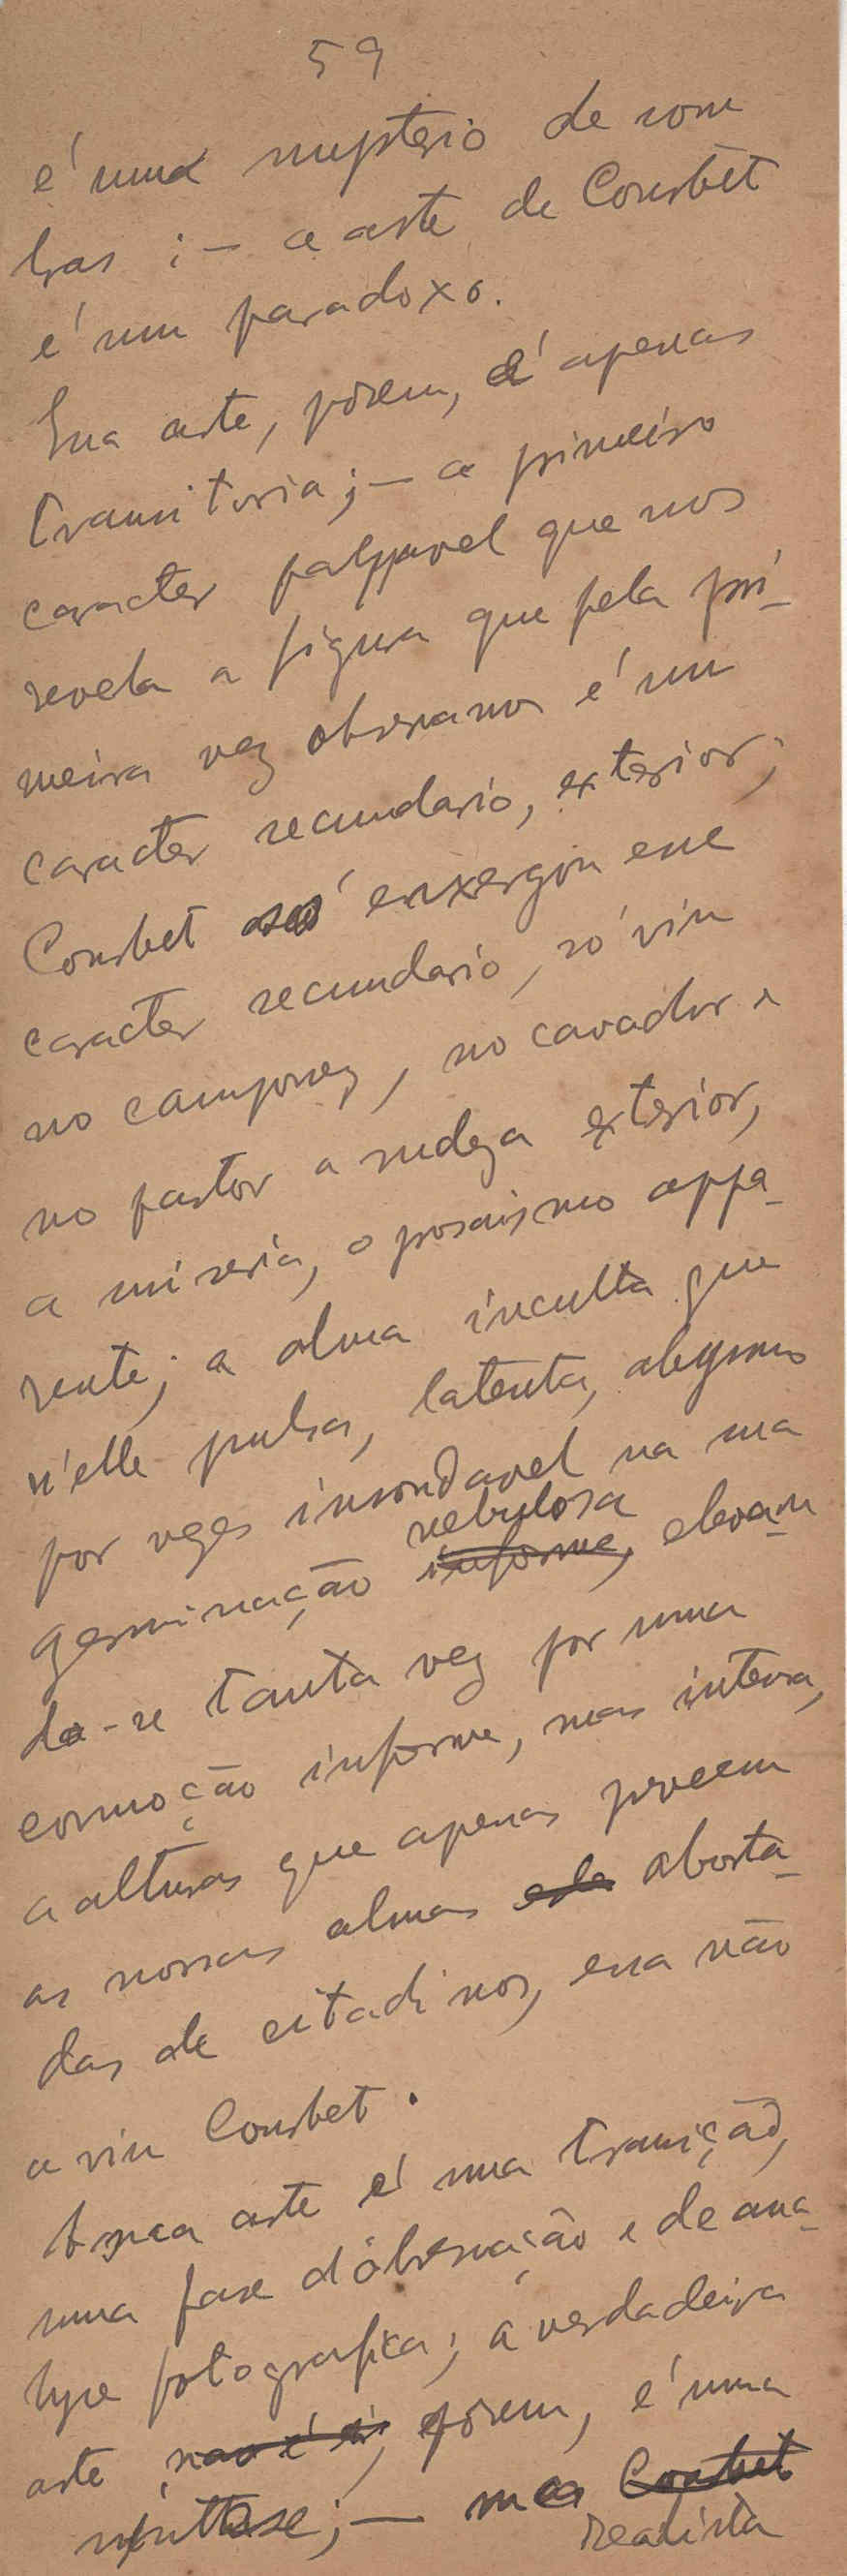 59
é um mysterio de som
bras ; — a arte de Courbet
é um paradoxo.
Sua arte, porem, é apenas
transitoria; — a primeiro
caracter palpavel que nos
revela a figura que pela pri-
meira vez observamos é um
caracter secundario, exterior;
Courbet só enxergou esse
caracter secundario, só viu
no camponez, no cavador e
no pastor a rudeza exterior,
a miseria, o prosaismo appa-
rente; a alma inculta que
n'elle pulsa, latente, abysmo
por vezes insondavel na sua
nebulosa
germinação informe, elevan
do-se tanta vez por uma
commoção informe, mas intensa,
a alturas que apenas preveem
as nossas almas aborta-
das de citadinos, essa não
a viu Courbet.
Essa arte é uma transição,
uma fase d'observação e de ana-
lyse fotografica; a verdadeira
arte não é só, porem, é uma
synthese; — mas Courbet
realista